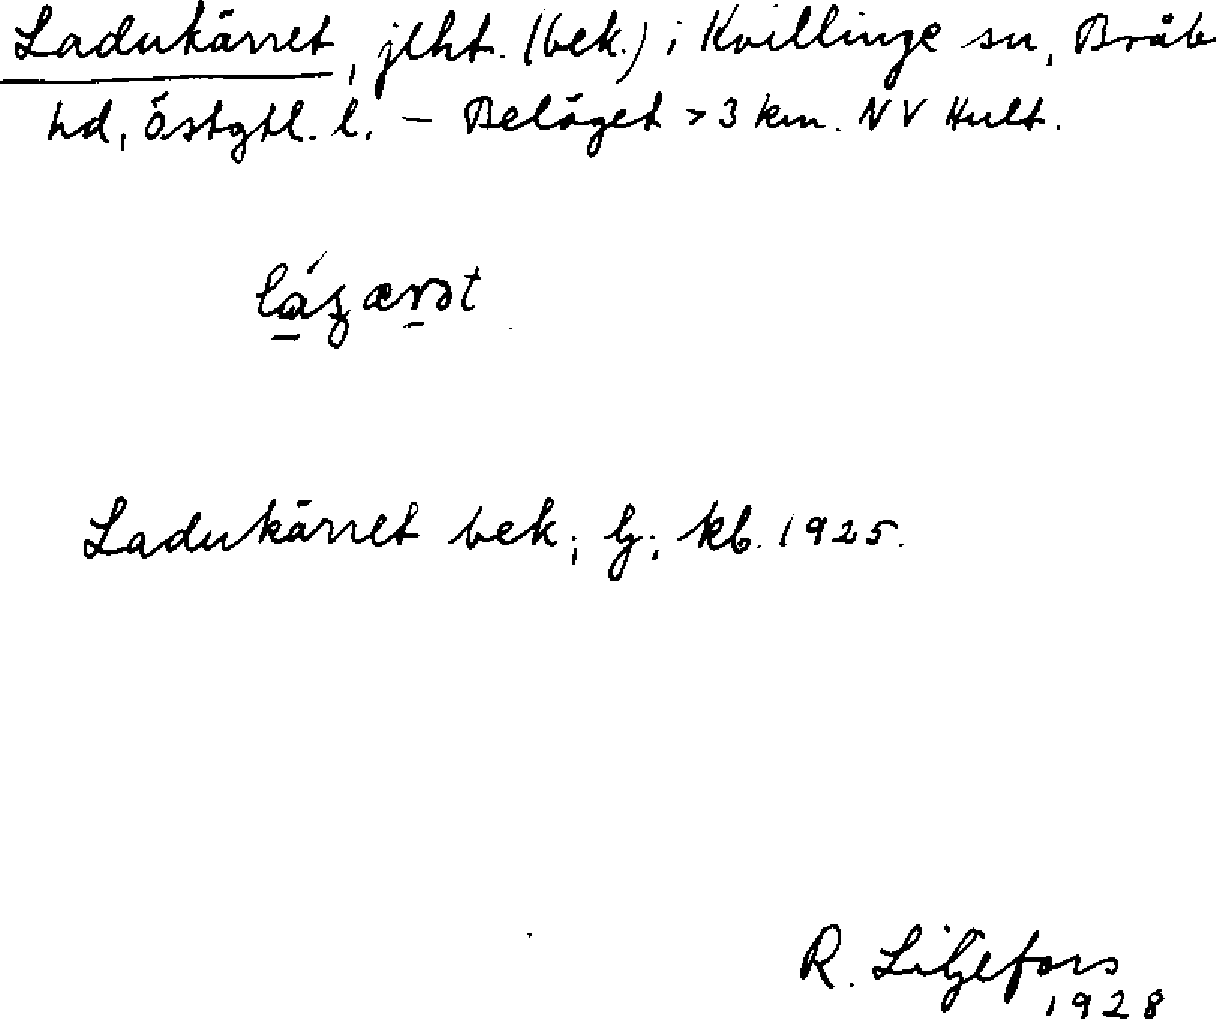 Ladukärret, jlht. (bek.) i Kvillinge sn, Bråb
hd, Östgtl. l. – Beläget > 3 km. NV Hult.
Ladukärret bek; lj; kb. 1925.
R. Liljefors
1928